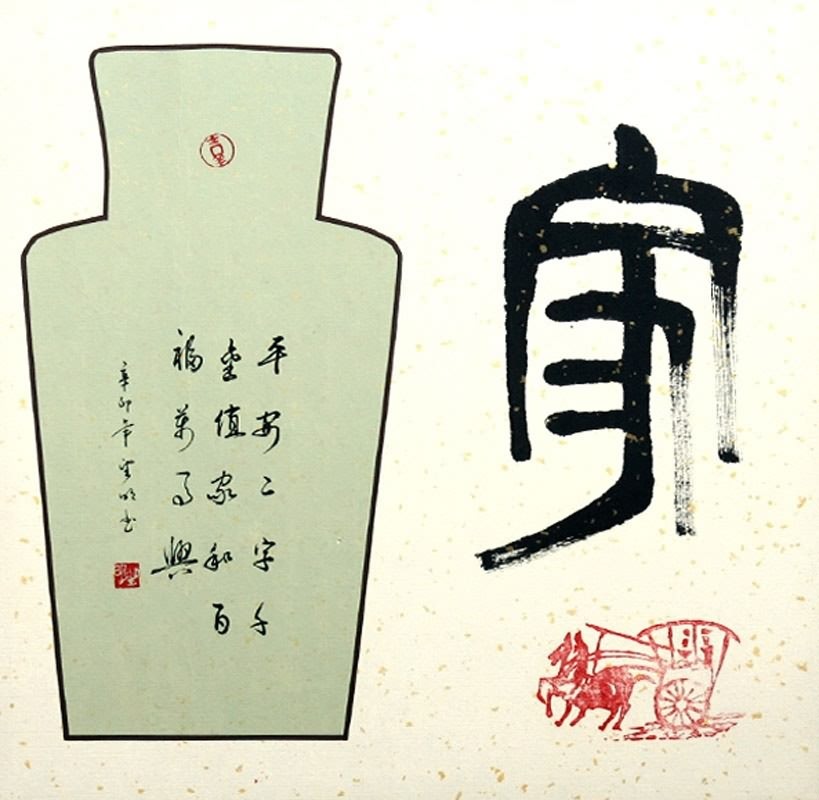 家
平安二字千
金值家和百
福萬事興
辛卯年明书